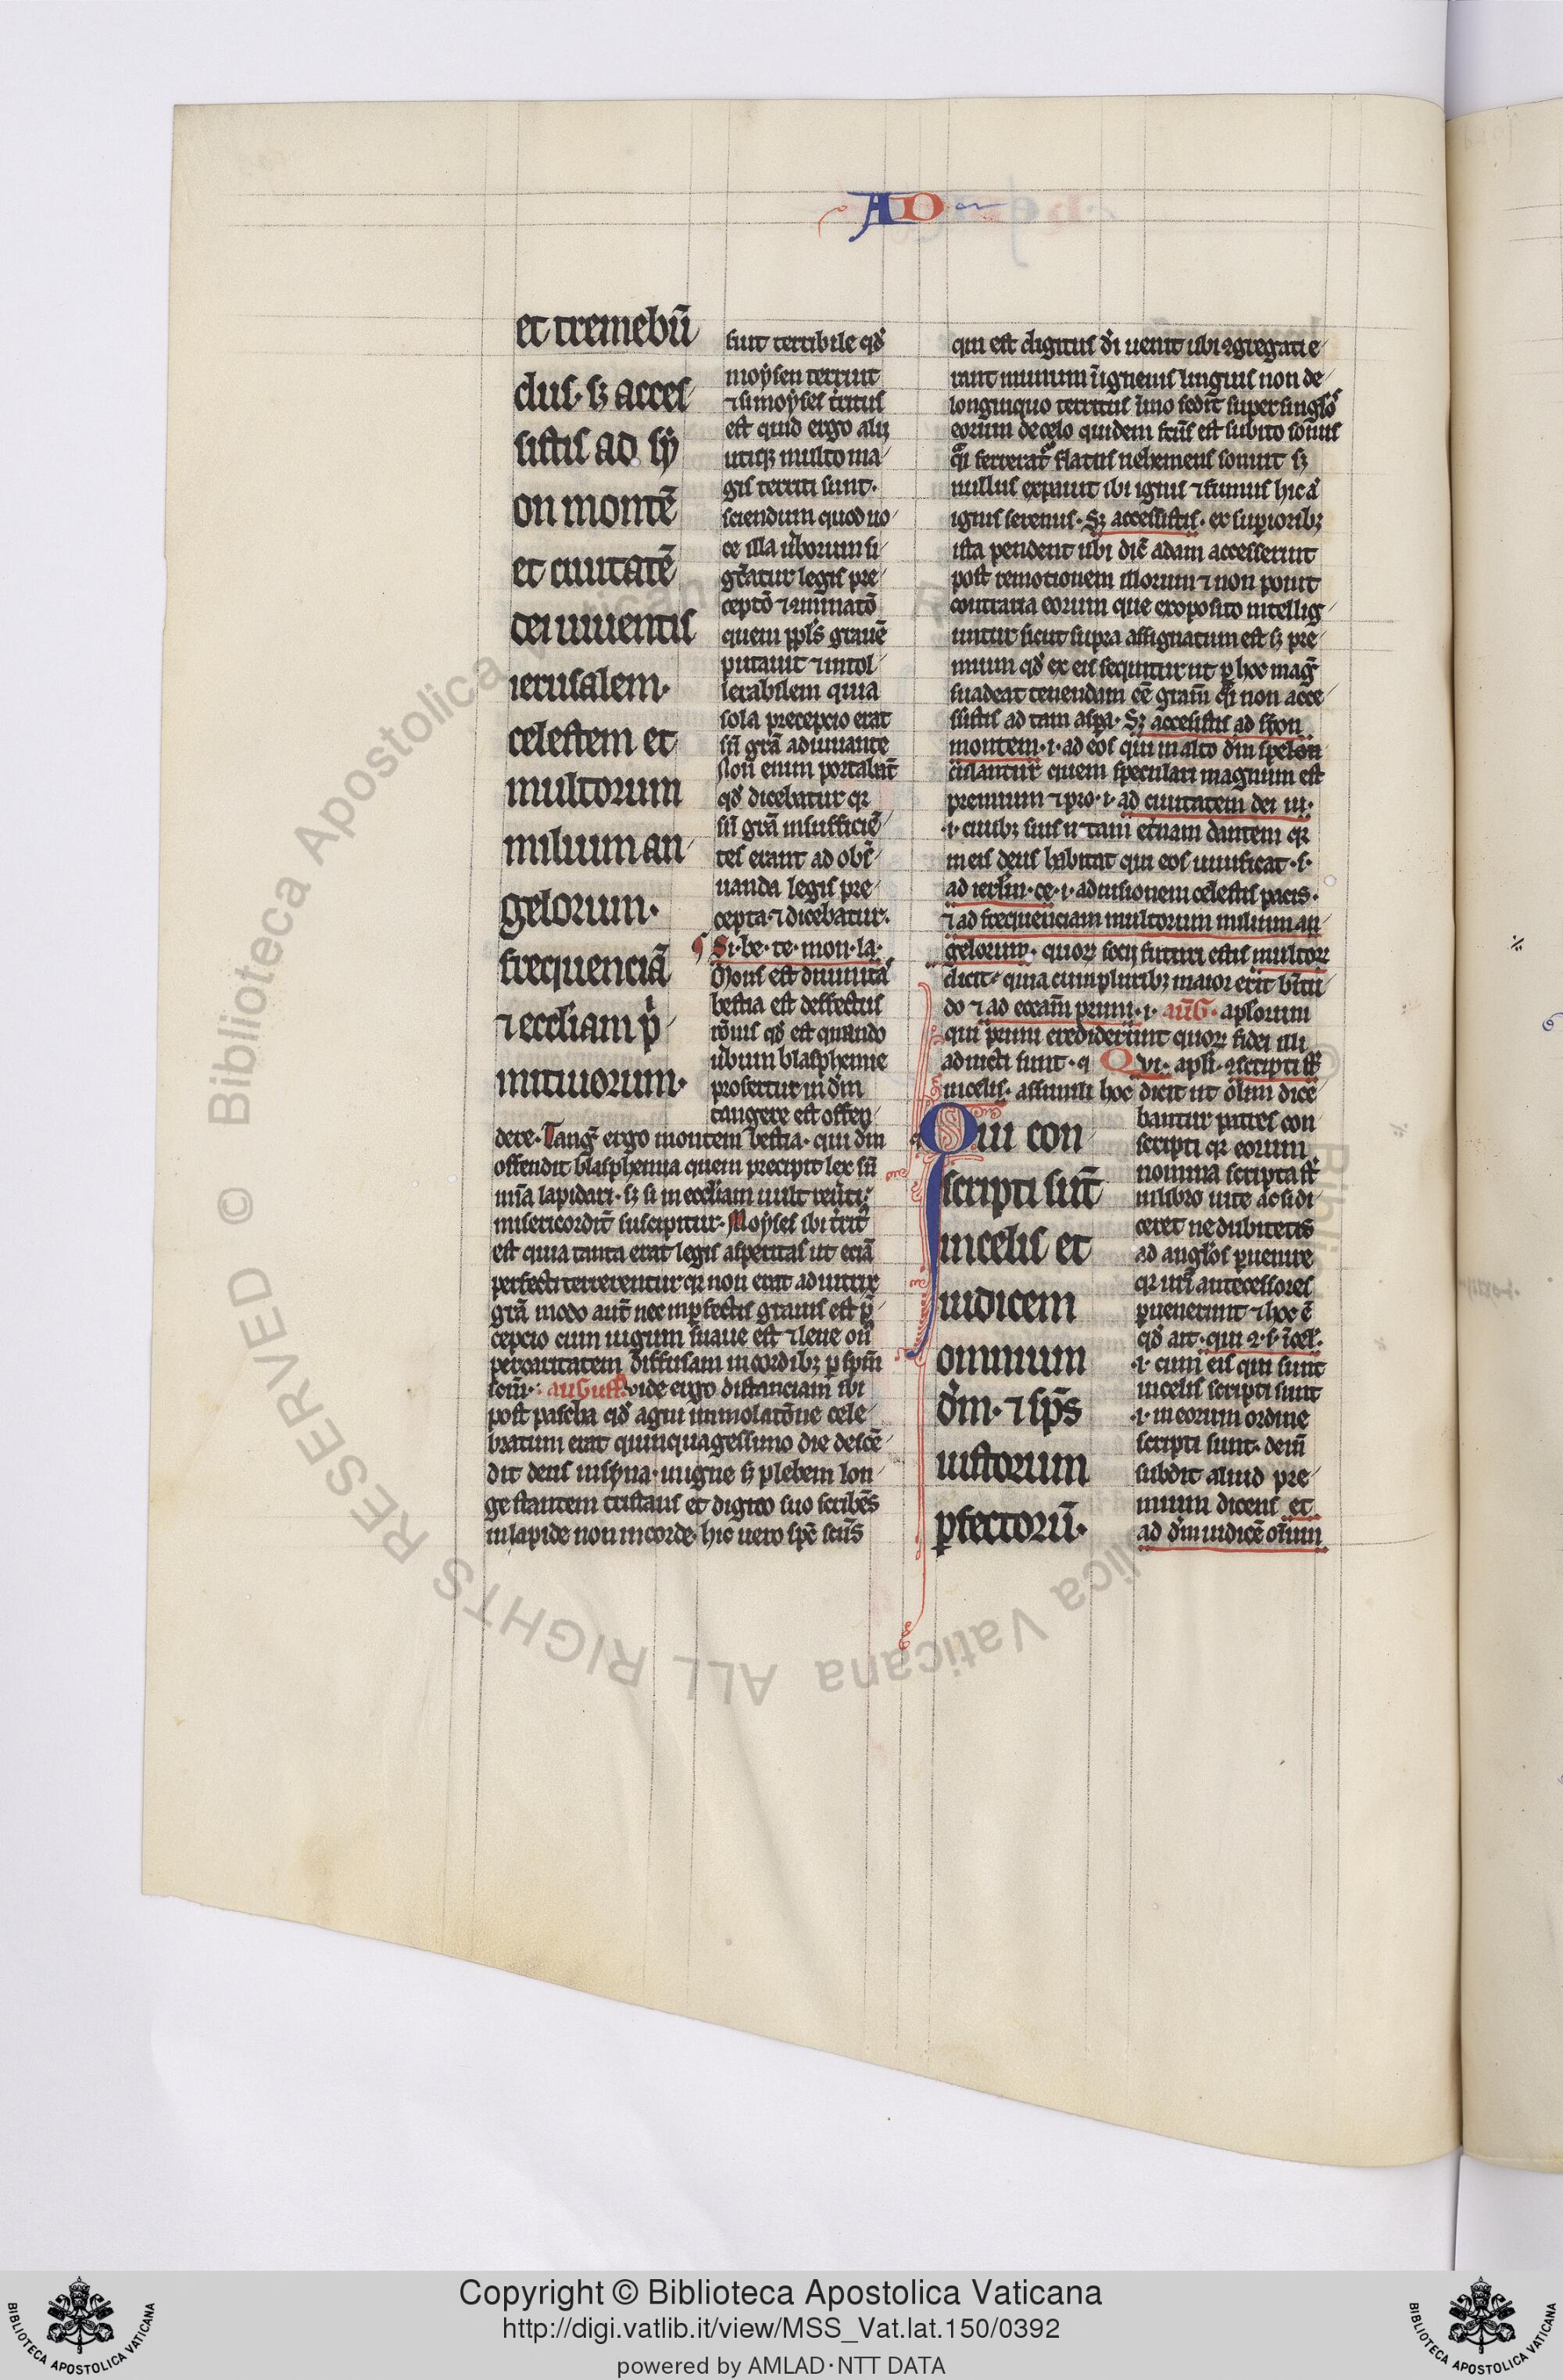 AD
et tremebū
dus· sꝫ acces
sistis ad sy
on montē
et ciuitatē
dei uiuentis
ierusalem·
celestem et
multorum
milium an
gelorum·
frequenciā
⁊ eccliam p̄
mitiuorum·
fuit terribile qd̛
moysen terruit
⁊ si moyses t̛ritus
est quid ergo alij
utiqꝫ multo ma
gis territi sunt·
sciendum quod uo
ce illa ư̄borum si
quem ppl̄s grauē
putauit ⁊ intol
lerabilem quia
sola precepcio erat
sn̄ grā adiuuante
Non enim portabāt
qd̛ dicebatur qr
sn̄ grā insufficiē
tes erant ad obs̛
uanda legis pre
cepta· ⁊ dicebatur·
¶ Si· be· te· mon· la·
Mons est diuinitas
bestia est deffectus
rōnis qd̛ est quando
ūbum blasphemie
profertur in dm̄
tangere est offen
dere· Tangit ergo montem bestia· qui dm̄
offendit blasphemia quem precipit lex sn̄
mīa lapidari· sꝫ si in eccliam uult reūti·
misericordit̛ suscipitur· Moyses ibi t̛rit̛
est quia tanta erat legis asperitas ut eciā
perfecti terrerentur qr non erat adiutrix
grā modo aut̄ nec inp̱fectis grauis est p̄
cepcio cum iugum suaue est ⁊ leue on̄
per caritatem diffusam in cordibꝫ ꝑ spm̄
scm̄· august̄ vide ergo distanciam ibi
post pascha qd̛ agni immolatōne cele
bratum erat quinquagessimo die descē
dit deus in syna· in igne sꝫ plebem lon
ge stantem tristans et digito suo scribēs
in lapide non in corde· hic uero spc̄ scūs
qui est digitus dī uenit ubi ↄgregati e
rant in unum ī igneis linguis non de
longinquo territus īmo sedit super singlos
eorum de celo quidem scūs est subito sonus
q̄i ferreret̛ flatus uehemens sonuit sꝫ
nullus expauit ibi ignis ⁊ fumus hic ā
ignis serenus· Sꝫ accessistis· ex supioribꝫ
ista pendent ubi dic̄ ad am accesserunt
post remotionem illorum ⁊ non ponit
contraria eorum que exoposito intellig
untur sicut supra assignatum est sꝫ pre
mium qd̛ ex eis sequitur ut ꝑ hoc mag̛
suadeat tenendam ee̅ gram̄ q̄i non acce
ssistis ad tam asꝑa· Sꝫ accesistis ad syon
montem· i· ad eos qui in alto dm̄ spe
culantur quem speculari magnum est
premium ⁊ pro· i· ad ciuitatem dei ui·
in eis deus habitat qui eos uiuificat· s·
ad ierl̄m· ce· i· ad uisionem celestis pacis·
⁊ ad frequenciam multorum milium an
gelorum· quorꝝ socij futuri estis multorꝝ
dicit· quia cum pluribꝫ maior erit bt̄itu
do ⁊ ad eccam̄ primi· i· aug̅· aplorum
qui primi crediderunt quorꝝ fidei illi
adiuncti sunt· Qui· apli· ↄscripti st̄
in celis· assimili hoc dicit ut olim dice
bantur patres con
scripti qr eorum
nomina scripta st̄
in libro uite ac si di
ceret ne dubitetis
ad angl̄os ꝑuenire
qr ur̄i antecessores
ꝑuenerunt ⁊ hoc ē
qd̛ ait· qui ↄ· s· ī cel·
·i· cum eis qui sunt
in celis scripti sunt
·i· in eorum ordine
scripti sunt· dein̄
subdit aliud pre
mium dicens et
ad dm̄ iudicē oīum
Qui con
scripti sūt
in celis et
iudicem
omnium
dm̄· ⁊ sps̄
iustorum
ꝑfectorū·
Copyright © Biblioteca Apostolica Vaticana
http://digi.vatlib.it/view/MSS_Vat.lat.150/0392
powered by AMLAD·NTT DATA
BIBLIOTECA APOSTOLICA VATICANA
BIBLIOTECA APOSTOLICA VATICANA
© Biblioteca Apostolica Vaticana ALL RIGHTS RESERVED